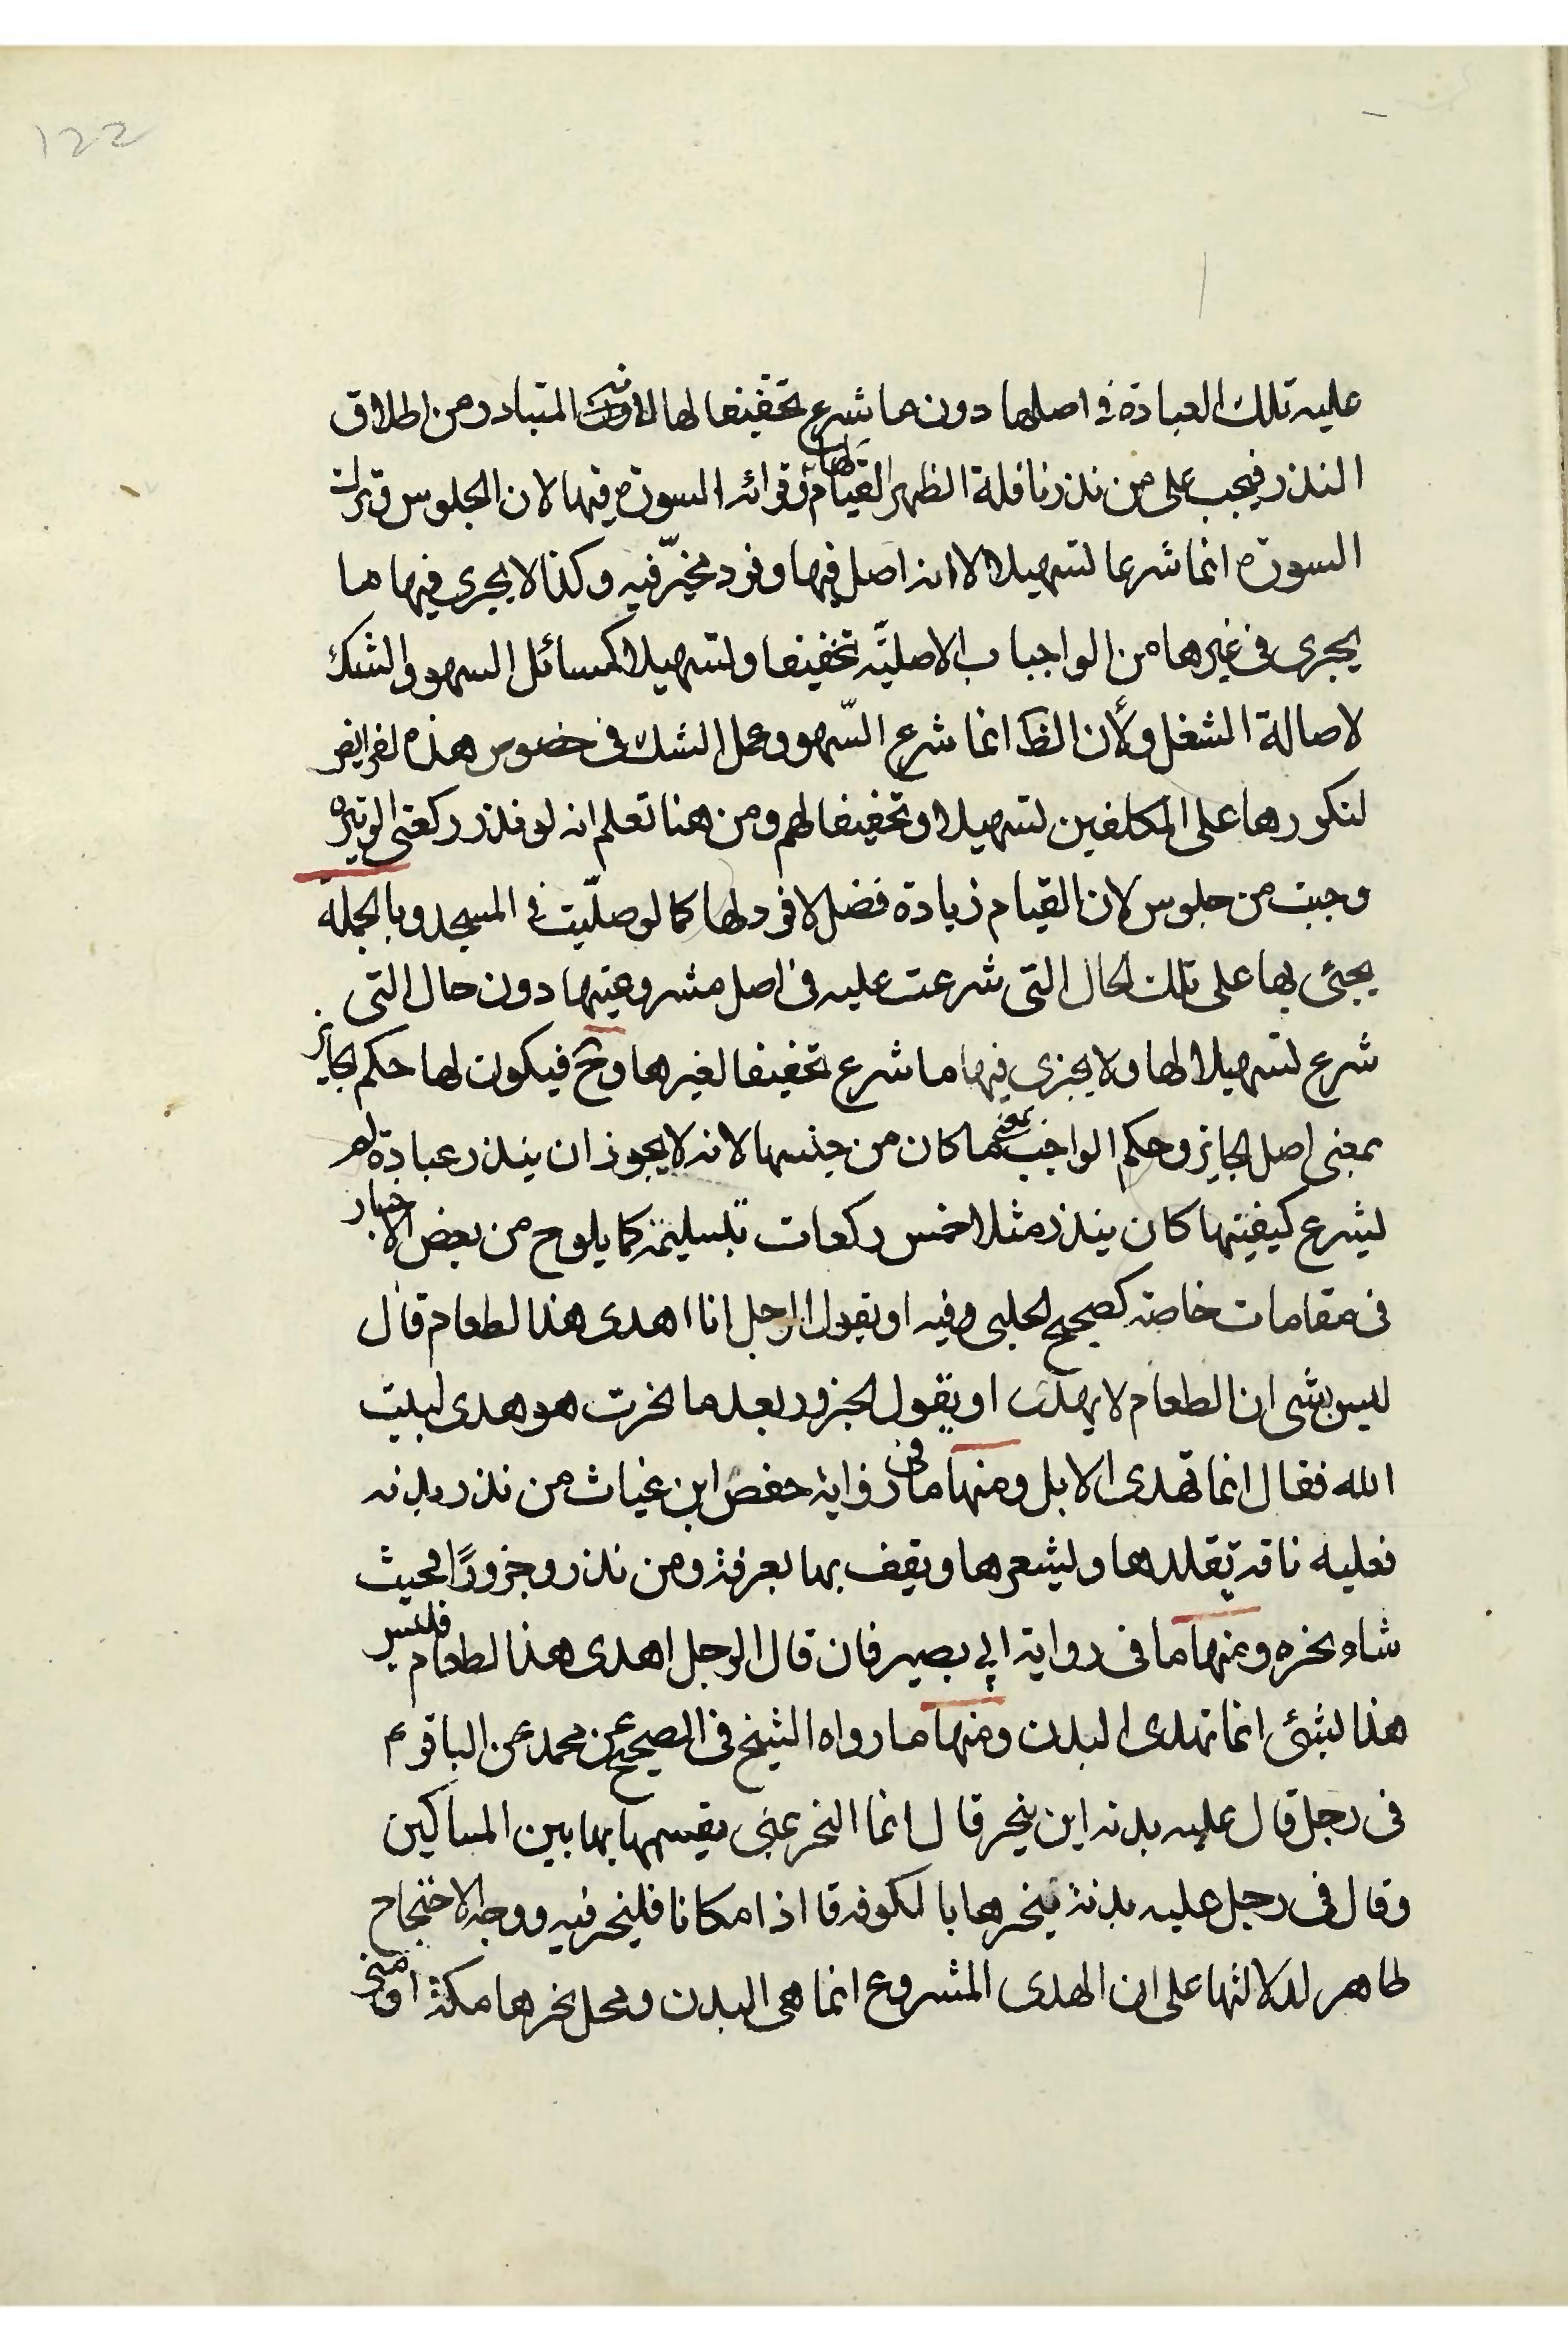 122
عليه تلك العبادة فى اصلها دون ما شرع تخفيفا لها لانه المتبادر من اطلاق
النذر فيجب على من نذر نافلة الظهر القيام لها وقرائه السورة فيها لان الجلوس وترك
السورة انما شرعا لتسهيلا لا انه اصل فيها وفرد مخيّر فيه وكذا لا يجرى فيها ما
يجرى فى غيرها من الواجبات الاصليّه تخفيفا ولتسهيلا كمسائل السهو والشك
لاصالة الشغل ولأن الظ انما شرع السّهو وعمل الشك فى خصوص هذه لفرايض
لتكورها على المكلفين لتسهيلا وتخفيفا لهم ومن هنا تعلم انه لو نذر ركعتى الوتيره
وجبت من جلوس لان القيام زيادة فضل لا فرد لها كما لو صلّيت فى المسجد وبالجمله
يجئى بها على تلك لحال التى شرعت عليه فى اصل مشروعيتها دون حال التى
شرع لتسهيلا لها ولا يجزى فيها ما شرع تخفيفا لغيرها وح فيكون لها حكم لجايز
بمعنى اصل لجايز وحكم الواجب بمعنى ما كان من جنسها لانه لا يجوز ان ينذر عبادة لم
ليشرع كيفيتها كان ينذر مثلا خمس ركعات بتسليمة كما يلوح من بعض الاخبار
فى مقامات خاصة كصحيح لحلبى وفيه او يقول الرجل انا اهدى هذا لطعام قال
ليس بشى ان لطعام لا يهدى او يقول لجزور بعد ما نحرت هو هدى لبيت
الله فقال انما تهدى الابل ومنها ما فى رواية حفص ابن غياث من نذر بدنه
فعليه ناقة يقلدها وليشعرها ويقف بها بعرفة ومن نذر وجزورًا فحيث
شاء نحره ومنها ما فى رواية ابي بصير فان قال الرجل اهدى هذا لطعام فليس
هذا لبشئ انما تهدى البدن ومنها ما رواه الشيخ فى الصحيح عن محمد عن الباقر ع
فى رجل قال عليه بدنه اين ينحر قال انما النحر بمنى يقسمها بها بين المساكين
وقال فى رجل عليه بدنة ينحرها بالكوفه قا اذا مكانا فلينحر فيه ووجه الاحتجاج
ظاهر لدلالتها على ان الهدى المشروع انما هى البدن ومحل نحرها مكة او منى